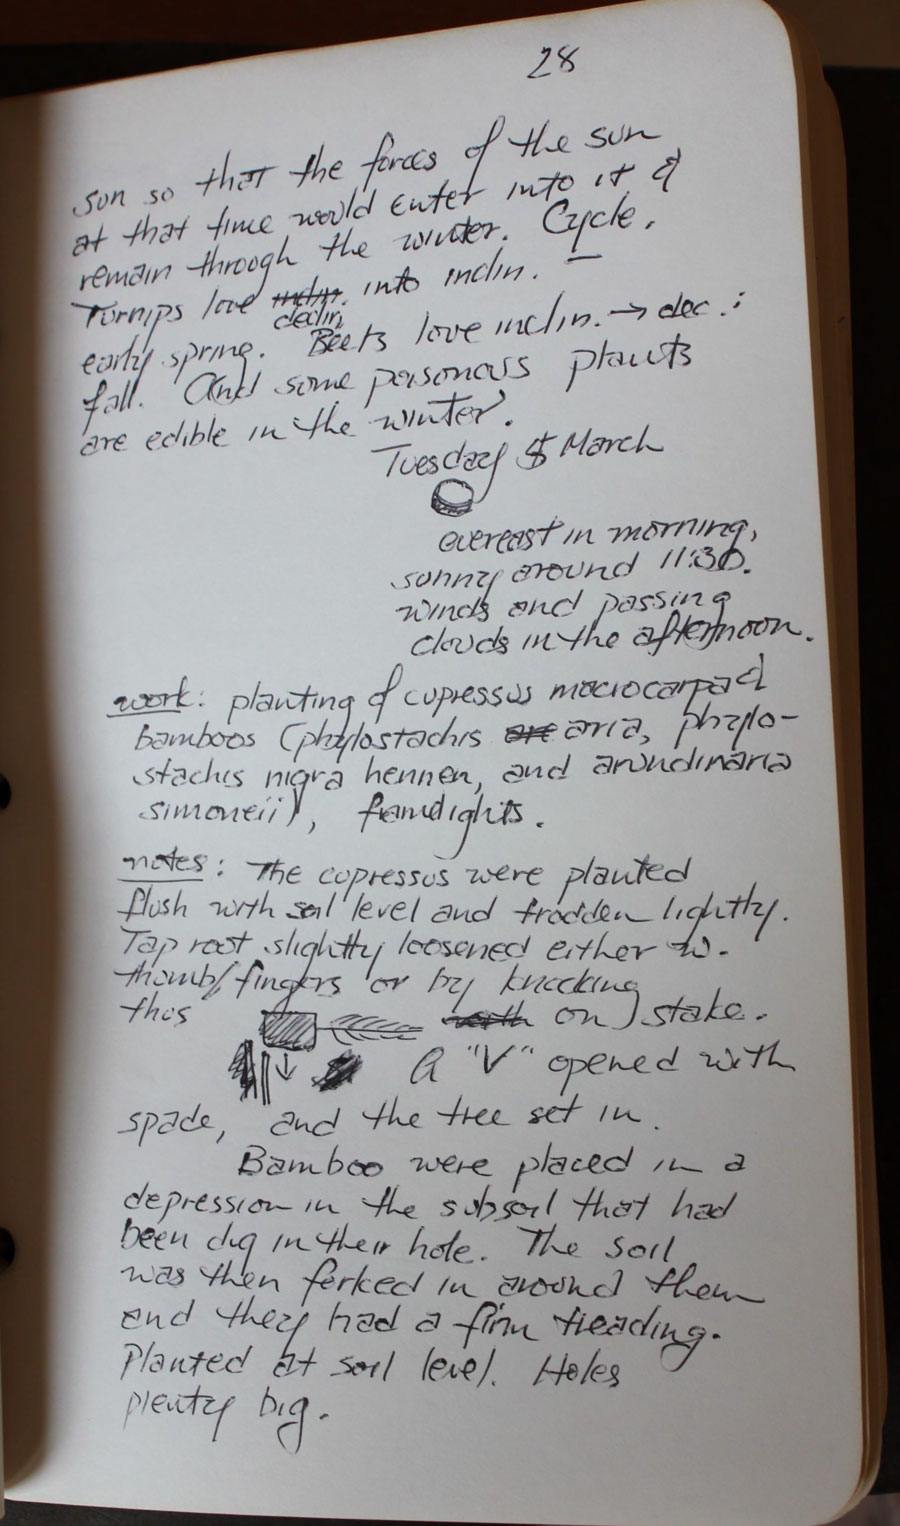 28
sun so that the forces of the sun
at that time would enter into it &
remain through the winter. Cycle.
Turnips love inclin. into inclin. —
declin.
early spring. Beets love inclin. → dec. :
fall. And some poisonous plants
are edible in the winter.
Tuesday 5 March
overcast in morning,
sunny around 11:30.
winds and passing
clouds in the afternoon.
work: planting of cupressus macrocarpa &
bamboos (phylostachis aria, phylo-
stachis nigra hennen, and arundinaria
simoneii),
notes: The cupressus were planted
flush with soil level and trodden lightly.
Tap root slightly loosened either w.
thumb/fingers or by knocking
thus on stake.
A "V" opened with
spade, and the tree set in.
Bamboo were placed in a
depression in the subsoil that had
been dug in their hole. The soil
was then forked in around them
and they had a firm treading.
Planted at soil level. Holes
plenty big.